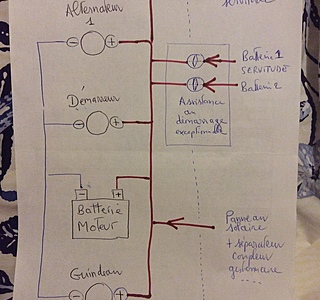 Alternateur
1
- +
servitude
Batterie 1
SERVITUDE
Batterie 2
Assistance
au
démarrage
exceptionnelle
Démarreur
- +
- +
Batterie
Moteur
Panneau
solaire
+ séparateur
coupleur
gestionnaire ....
Guindeau
- +